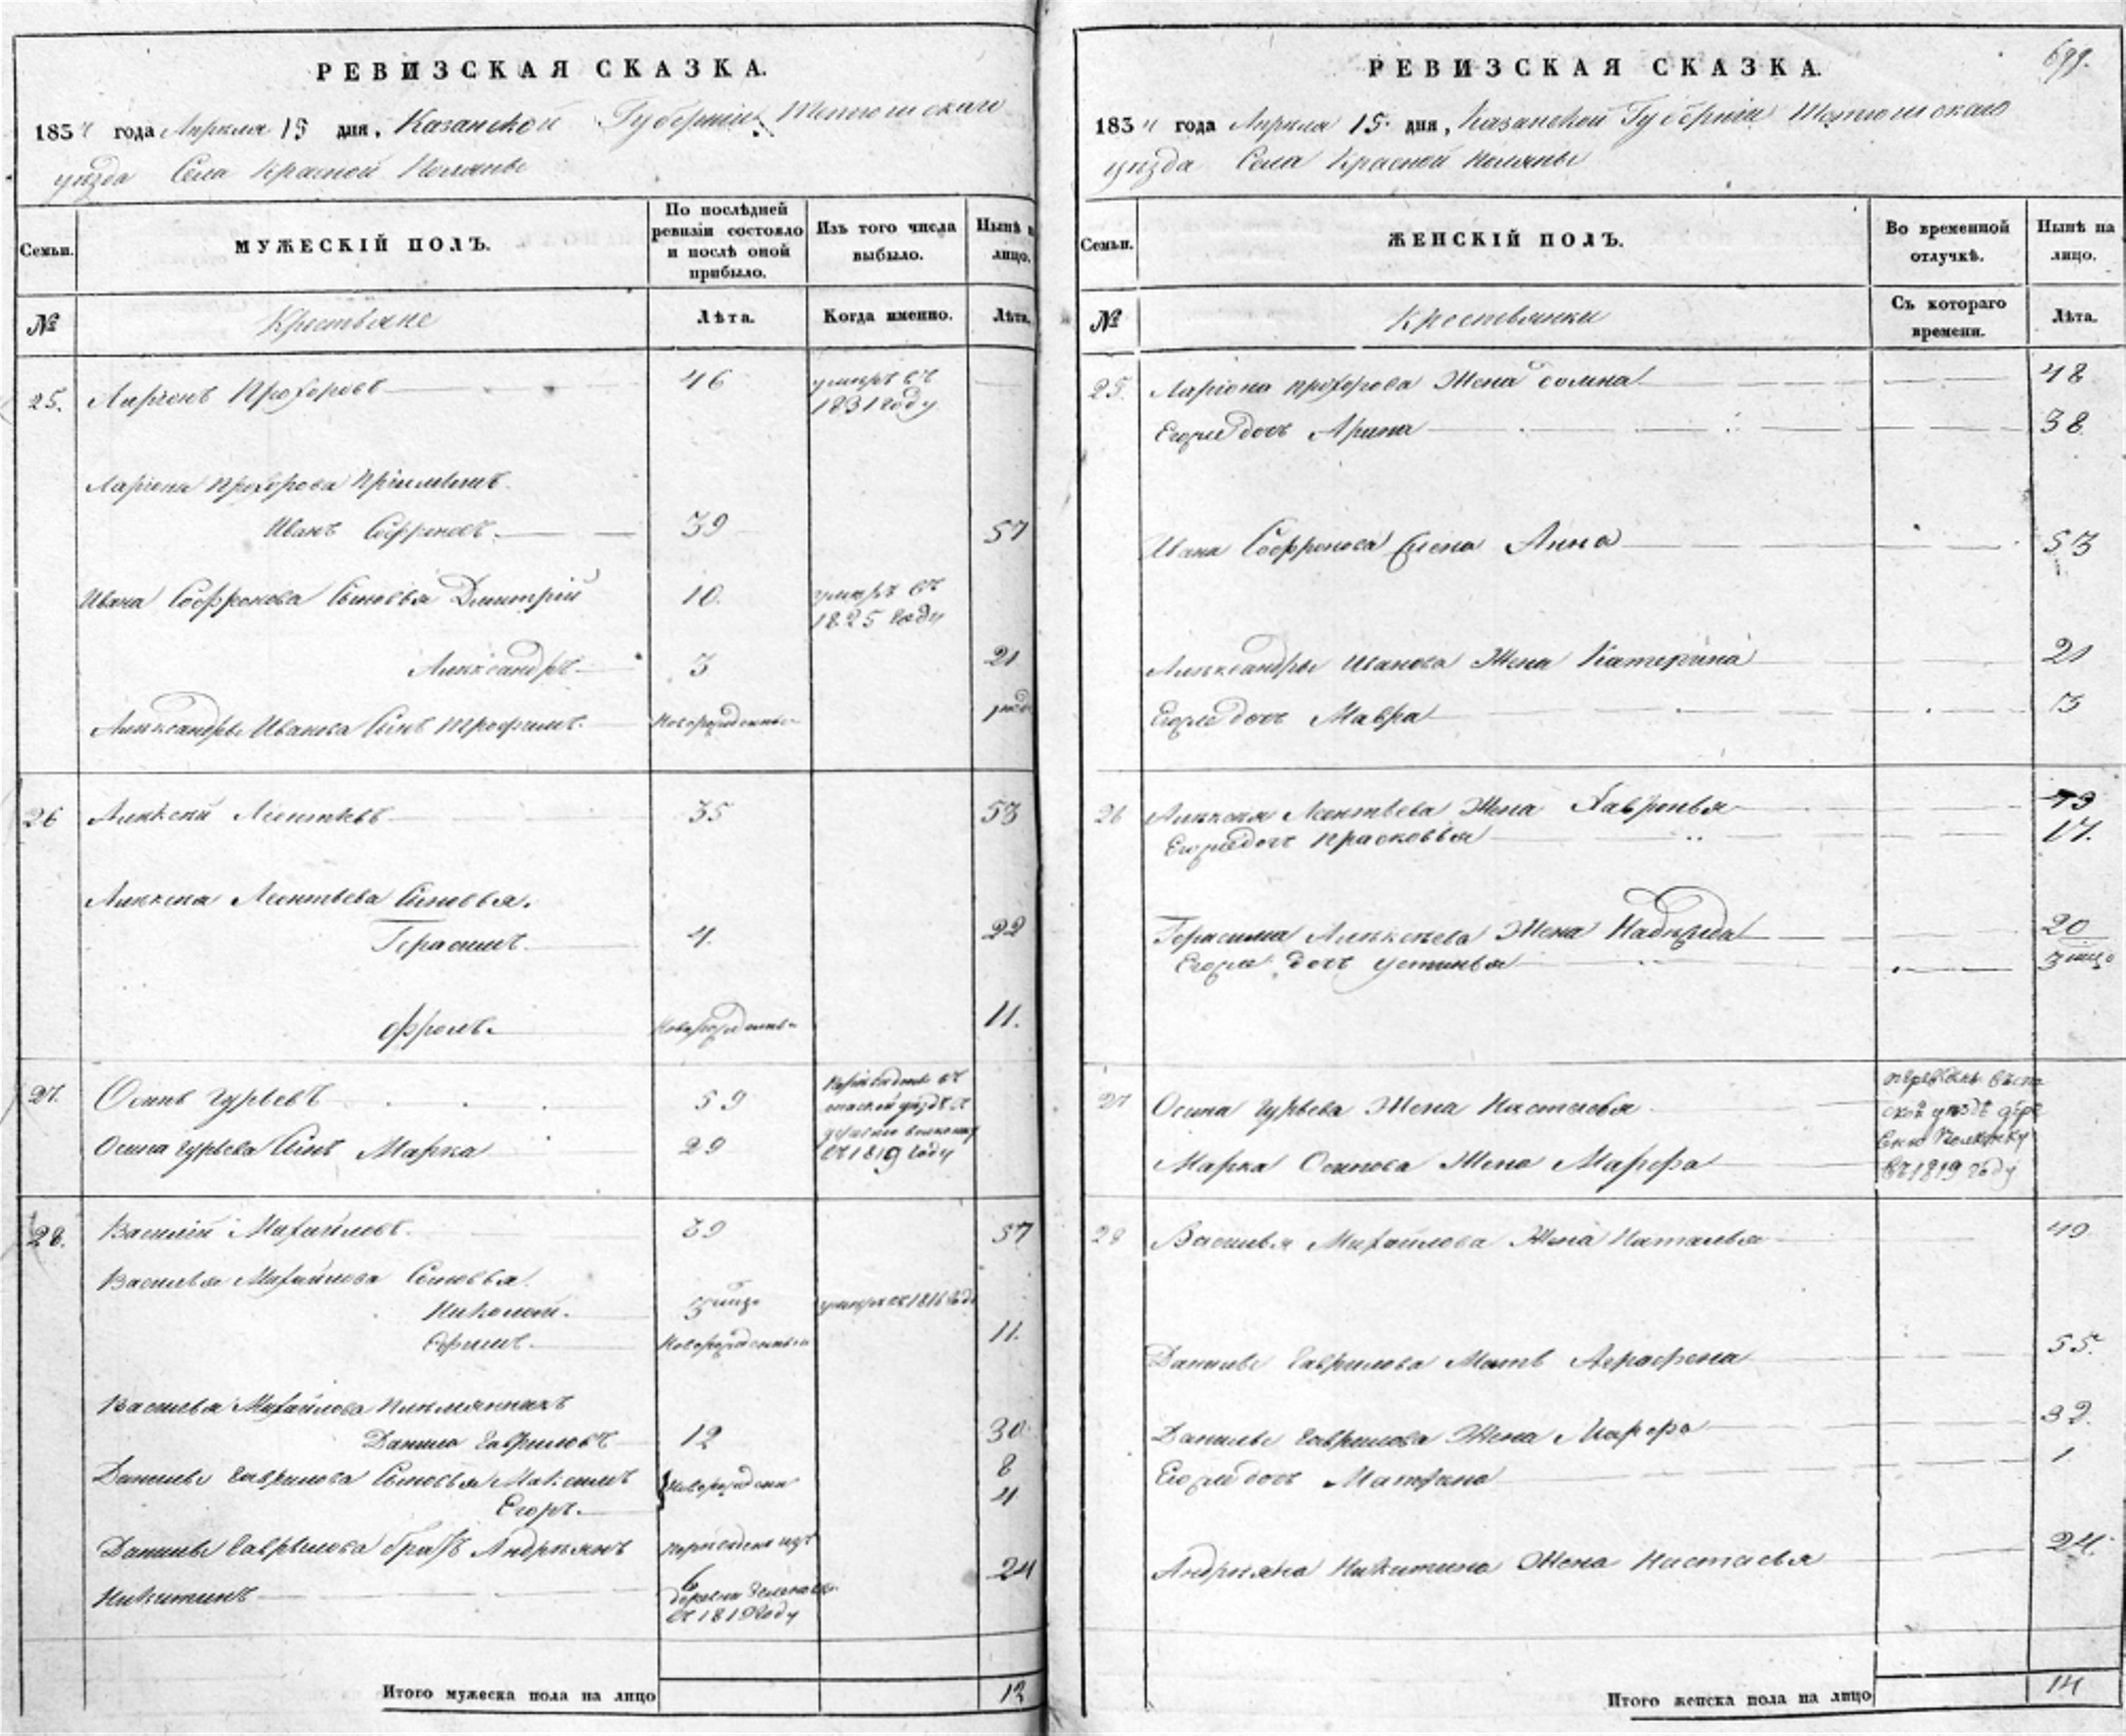 РЕВИЗСКАЯ СКАЗКА.
1834 года Апреля 15 дня, Казанской Губернии Тетюшскаго
уезда Села Красной Поляны
Семьи.
МУЖЕСКІЙ ПОЛЪ.
По послѣдней
ревизіи состояло
и послѣ оной
прибыло.
Изъ того числа
выбыло.
Нынѣ н
лицо.
№
Крестьяне
Лѣта.
Когда именно.
Лѣта.
25. Ларіонъ Прохоровъ 46 умеръ въ
1831 году
Ларіона Прохорова Пріимышъ
Иванъ Софроновъ. 39 57
Ивана Софронова Сыновья Дмитрій 10. умеръ въ
1825 году
Александръ 3 21
Александры Иванова Сынъ Трофимъ. Новорожденные
26 Алексей Леонтьевъ 35 53
Алексея Леонтьева Сыновья.
Герасимъ 4. 22
Фролъ. Новорожденные 11.
27. Осипъ Гурьевъ 59
Осипа Гурьева Сынъ Марка 29
въ 1819 году
28. Василій Михайловъ. 39 57
Василья Михайлова Сыновья
Николай. умеръ въ 1816 году
Ефимъ. Новорожденные 11.
Василья Михайлова Племянникъ
Данило Гавриловъ 12 30
Данилы Гаврилова Сыновья Максимъ Новорожден 8
Егоръ. 4
Данилы Гаврилова братъ Андреянъ переведенъ изъ
Никитинъ 6 24
деревни
въ 1819 году
Итого мужеска пола на лицо 12
699.
РЕВИЗСКАЯ СКАЗКА.
1834 года Апреля 15 дня, Казанской Губерніи Тетюшскаго
уезда Села Красной Поляны
Семьи.
ЖЕНСКІЙ ПОЛЪ.
Во временной
отлучкѣ.
Нынѣ на
лицо.
№
Крестьянки
Съ котораго
времени.
Лѣта.
25. Ларіона Прохорова Жена 48
Егоже дочь Арина 38
Ивана Софронова Жена Анна 53
Александры Иванова Жена Катерина 21
Егоже дочь Мавра 3
26 Алексея Леонтьева Жена Хавронья
Егоже дочь Прасковья 17.
Герасима Алексеева Жена Надежда 20
Егоже дочь Устинья
27 Осипа Гурьева Жена Настасья
Марка Осипова Жена Марфа
въ 1819 году
28 Василья Михайлова Жена Наталья 49
Данилы Гаврилова Мать Аграфена 55.
Данилы Гаврилова Жена Марфа 32.
Егоже дочь Матрена 1
Андреяна Никитина Жена Настасья 24.
Итого женска пола на лицо 14